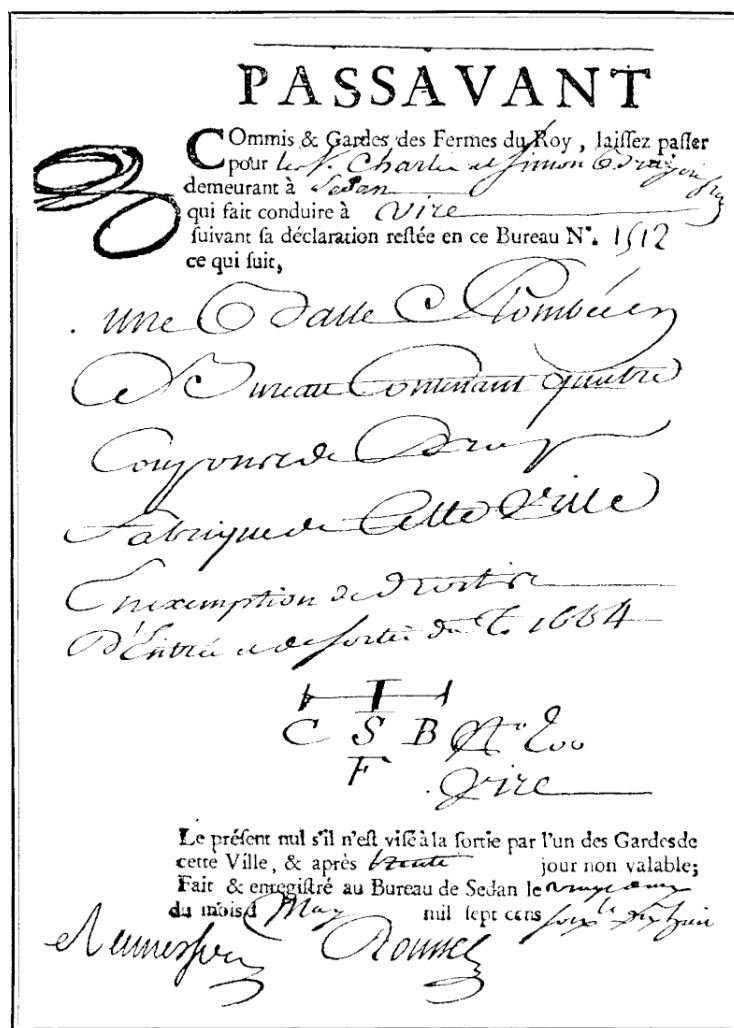 PASSAVANT
COmmis & Gardes des Fermes du Roy, laiſſez paſſer
pour les Srs. Charles et Simon
demeurant à Sedan
qui fait conduire à Vire
ſuivant ſa déclaration reſtée en ce Bureau N°. 1512
ce qui ſuit,
une Balle Plombée en
Ce Bureau Contenant quatre
Coupons de Drap
fabrique de Cette Ville
En exemption de droits
D'Entrée et de sortie du T. 1664
I
C S B No. 200
F Vire
Le préſent nul s'il n'eſt viſé à la ſortie par l'un des Gardes de
cette Ville, & après trente jour non valable;
Fait & enregiſtré au Bureau de Sedan le
du mois d May mil ſept cens